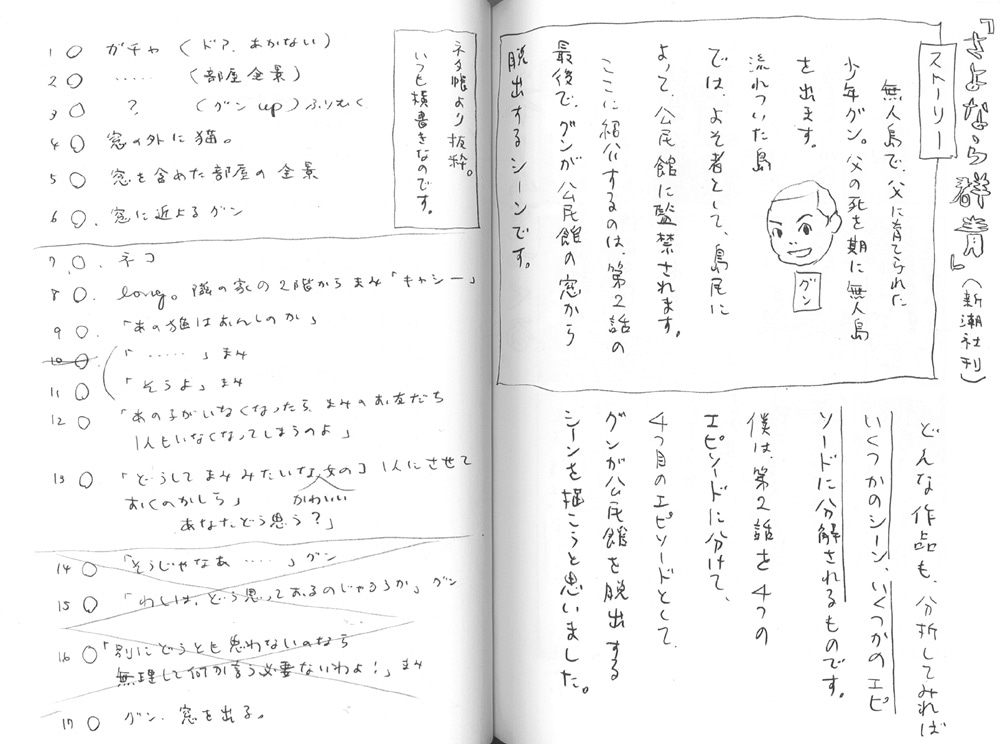 『さよなら群青』(新潮社刊)
ストーリー
無人島で、父に育てられた
少年グン。父の死を期に無人島
を出ます。
流れついた島
では、よそ者として、島民に
よって、公民館に監禁されます。
ここに紹介するのは、第2話の
最後で、グンが公民館の窓から
脱出するシーンです。
グン
どんな作品も、分析してみれば
いくつかのシーン、いくつかのエピ
ソードに分解されるものです。
僕は、第2話を4つの
エピソードに分けて、
4つ目のエピソードとして、
グンが公民館を脱出する
シーンを描こうと思いました。
ネタ帳より抜粋。
いつも横書きなのです。
1 ○ ガチャ (ドア、あかない)
2 ○ ‥‥‥ (部屋全景)
3 ○ ? (グンup)ふりむく
4 ○ 窓の外に猫。
5 ○ 窓を含めた部屋の全景
6 ○. 窓に近よるグン
7 ○. ネコ
8 ○. long。隣の家の2階からまみ「キャシー」
9 ○. 「あの猫はおんしのか」
10 ○ 「‥‥‥」まみ
11 ○ 「そうよ」まみ
12 ○ 「あの子がいなくなったら、まみのお友だち
1人もいなくなってしまうのよ」
13 ○ 「どうしてまみみたいな女のコ1人にさせて
かわいい
おくのかしら」
あなたどう思う?」
14 ○ 「そうじゃなあ ‥‥」グン
15 ○ 「わしは、どう思ってあるのじゃろうか」グン
16 ○ 「別にどうとも思わないのなら
無理して何か言う必要ないわよ!」まみ
17 ○ グン、窓を出る。